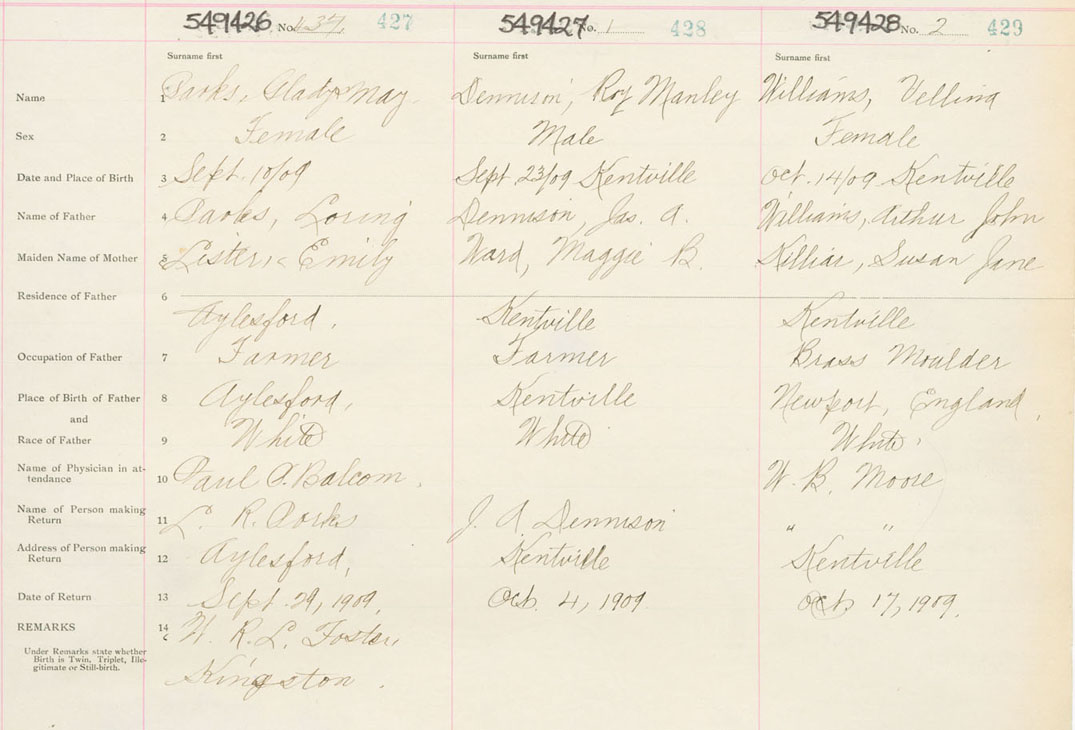 549426 No. 427 549427 No. 1 428 549428 No. 2 429
Surname first Surname first Surname first
Name 1 Parks, Gladys May. Dennison, Roy Manley Williams, Vellina
Sex 2 Female Male Female
Date and Place of Birth 3 Sept. 10/09 Sept 23/09 Kentville Oct. 14/09 Kentville
Name of Father 4 Parks, Loring Dennison, Jas. A. Williams, Arthur John
Maiden Name of Mother 5 Lister, Emily Ward, Maggie B. Susan Jane
Residence of Father 6
Aylesford. Kentville Kentville
Occupation of Father 7 Farmer Farmer Brass Moulder
Place of Birth of Father 8 Aylesford, Kentville Newport, England,
and
Race of Father 9 White White White
Name of Physician in at-
tendance 10 Paul A. Balcom. W. B. Moore
Name of Person making
Return 11 L. R. Parks J. A Dennison " "
Address of Person making
Return 12 Aylesford, Kentville Kentville
Date of Return 13 Sept. 29, 1909. Oct. 4, 1909. Oct. 17, 1909.
REMARKS 14 W. R. L. Foster,
Under Remarks state whether
Birth is Twin, Triplet, Ille-
gitimate or Still-birth.
Kingston.